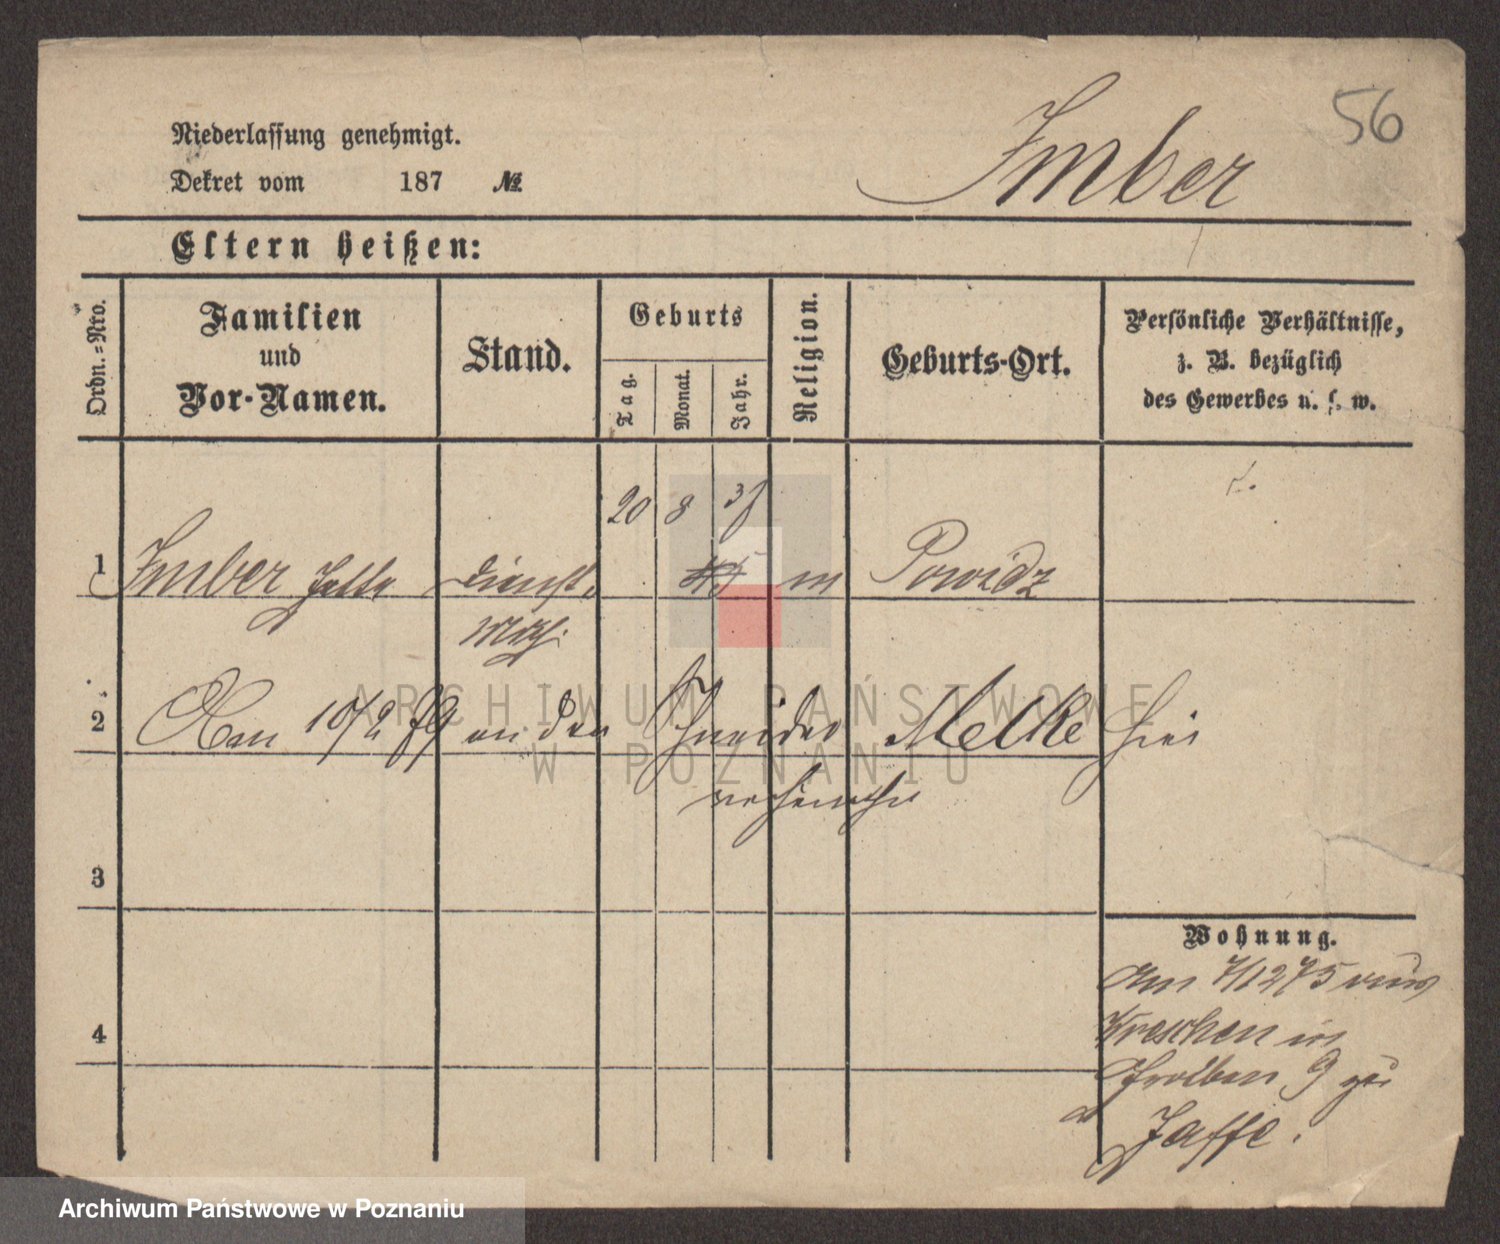 56
Imber
Niederlassung genehmigt.
Dekret vom 187 №
Eltern heißen:
Ordn.=Nro.
Familien
und
Vor-Namen.
Stand.
Geburts
Tag.
Monat.
Jahr.
Religion.
Geburts-Ort.
Persönliche Verhältnisse,
z. B. bezüglich
des Gewerbes u. s. w.
20 8
1 Imber Dienst. m Powidz
2 10/2 79 an den Schneider Melke hier
verheirathet
3
Wohnung.
Am 7/12 75 aus
Wreschen in
9 zu
4
Jaffe.
ARCHIWUM PAŃSTWOWE
W POZNANIU
Archiwum Państwowe w Poznaniu